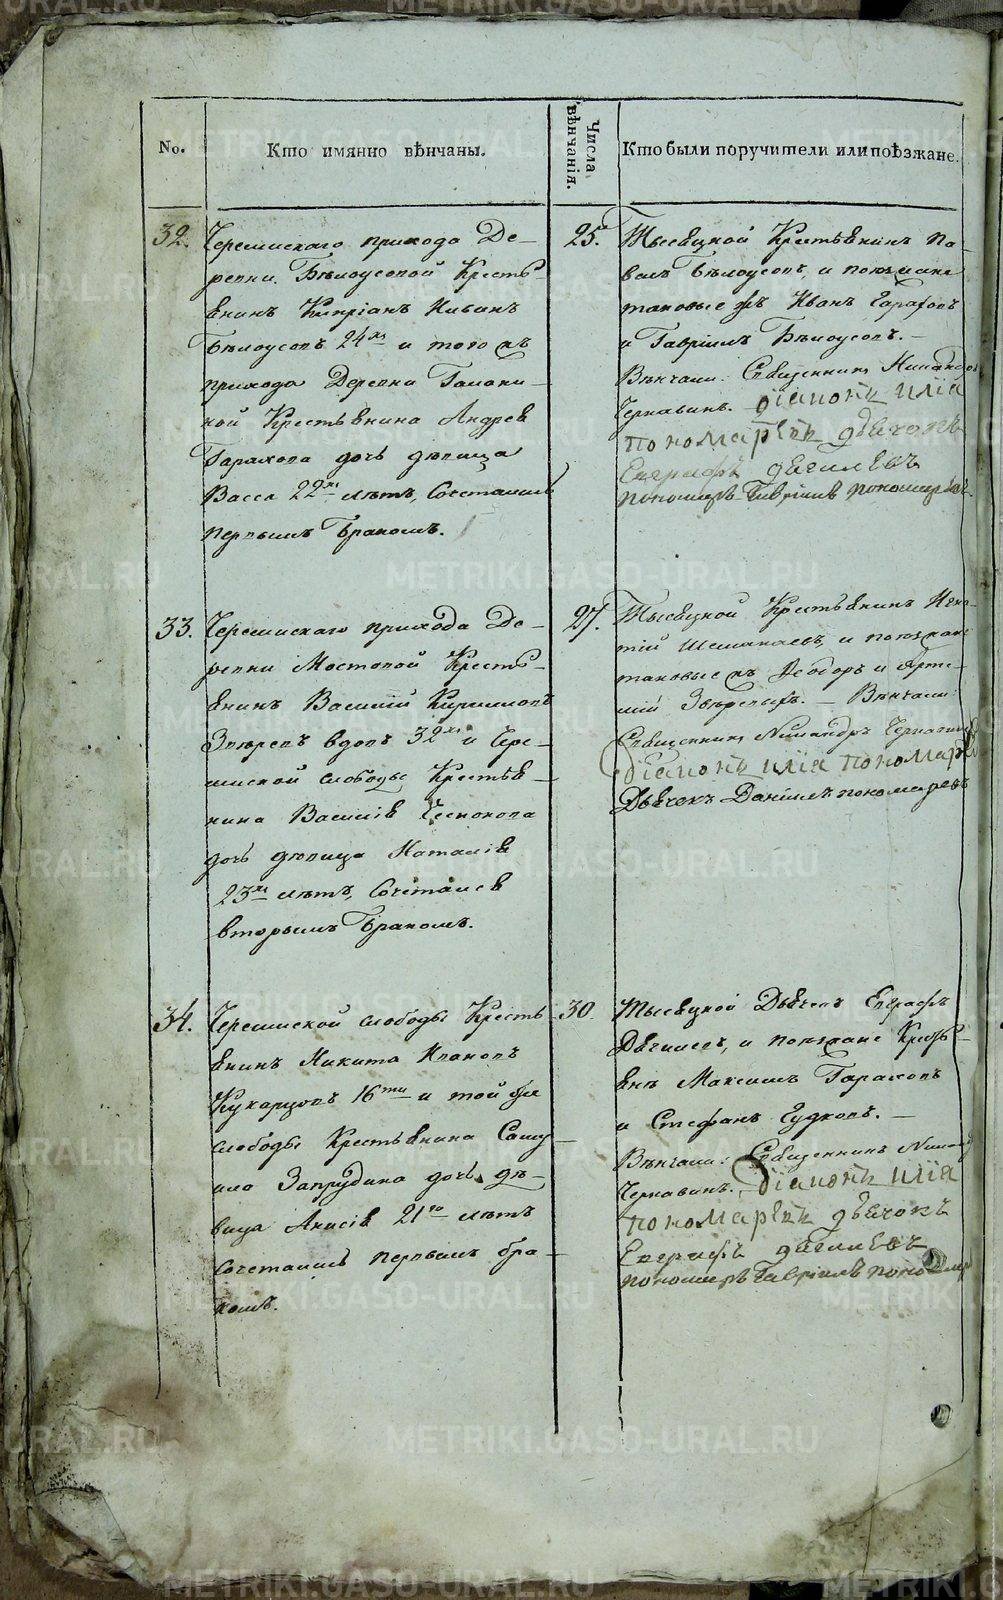 No.
Кто имянно вѣнчаны.
Числа вѣнчанія.
Кто были поручители или поѣзжане.
32.
Черемискаго прихода Де-
ревни Бѣлоусовой Кресть-
янинъ Кипріанъ
Бѣлоусовъ 24хъ и того жъ
прихода Деревни
Крестьянина Андрея
Гарахова дочь дѣвица
Васса 22хъ лѣтъ, Сочетались
первымъ бракомъ.
25.
Тысяцкой Крестьянинъ Па-
велъ Бѣлоусовъ, и поѣзжане
таковые жъ Иванъ Гараховъ
и Гавріилъ Бѣлоусовъ.
Вѣнчали: Священникъ Никандръ
Чернавинъ. Діаконъ Илія
пономаревъ дьячокъ
Евграфъ дягилевъ
пономарь Гавріилъ пономаревъ
33.
Черемискаго прихода Де-
ревни Мостовой Кресть-
янинъ Василій Кириловъ
Звѣревъ вдовъ 32хъ и Чере-
миской слободы Крестья-
нина Василія Чеснокова
дочь дѣвица Наталія
23хъ лѣтъ, Сочетался
вторымъ бракомъ.
27.
Тысяцкой Крестьянинъ Игна-
тій и поѣзжане
таковые жъ Ѳеодоръ и Арте-
мій Звѣревы. - Вѣнчали:
Священникъ Никандръ Чернавинъ
Діаконъ Илія пономаревъ
Дьячекъ Даніилъ пономаревъ
34.
Черемиской слободы Кресть-
янинъ Никита Ивановъ
Кукарцовъ 16ти и той же
слободы Крестьянина Саму-
ила Запрудина дочь дѣ-
вица Анисія 21го лѣтъ
сочетались первымъ бра-
комъ.
30.
Тысяцкой Дьячекъ Евграфъ
Дягилевъ, и поѣзжане Кресть-
яне Максимъ Гараховъ
и Стефанъ Гудковъ.
Вѣнчали: Священникъ Никандръ
Чернавинъ. Діаконъ Илія
пономаревъ дьячокъ
Евграфъ дягилевъ
пономарь Гавріилъ пономаревъ
METRIKI.GASO-URAL.RU